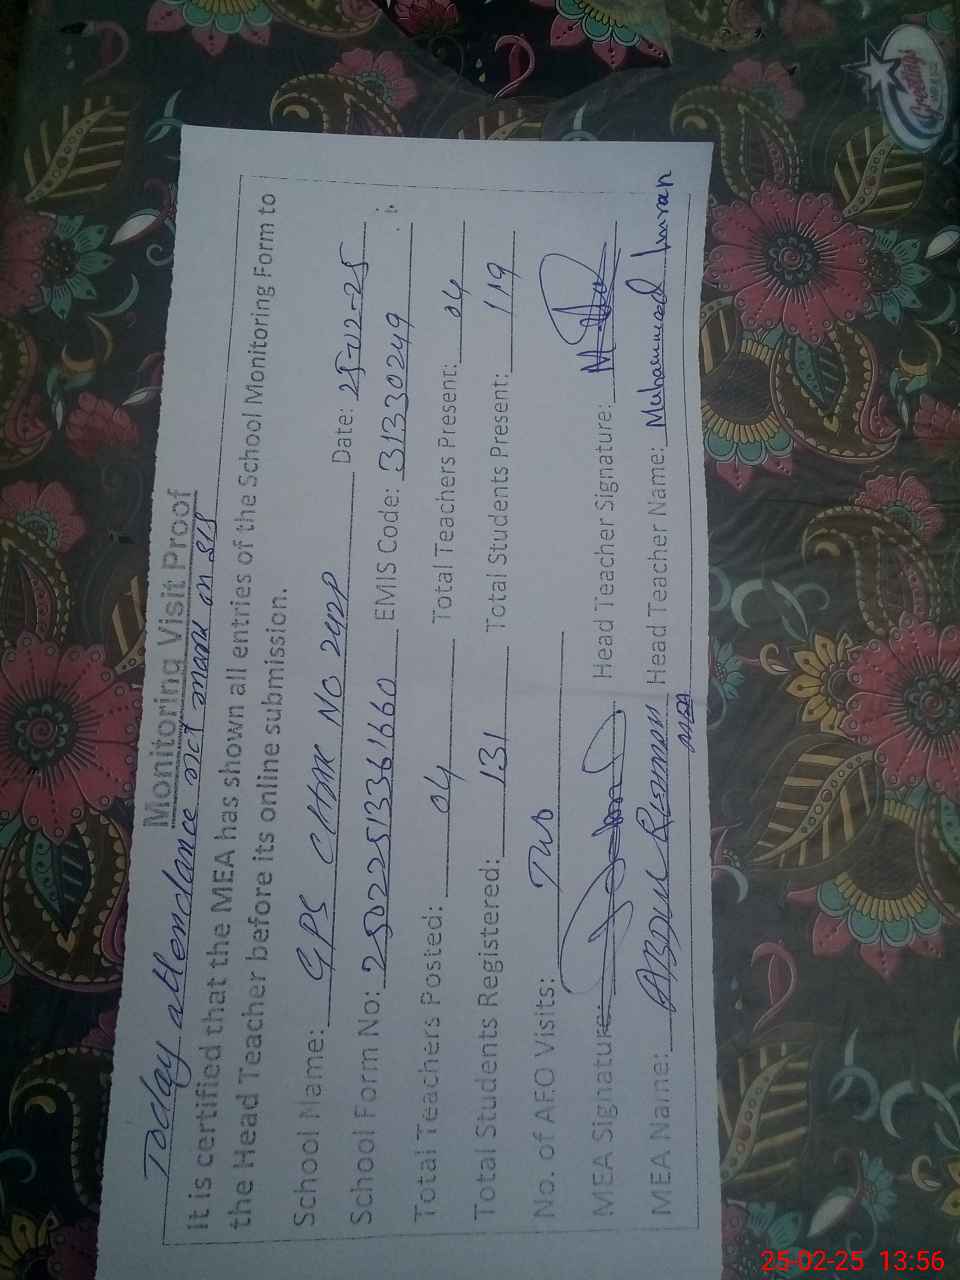 Monitoring Visit Proof
Today attendance not mark on SIS
It is certified that the MEA has shown all entries of the School Monitoring Form to
the Head Teacher before its online submission.
School Name: GPS CHAK NO 242P Date: 25-02-25
School Form No: 25022513361660 EMIS Code: 31330249
Total Teachers Posted: 04 Total Teachers Present: 04
Total Students Registered: 131 Total Students Present: 119
No. of AEO Visits: Two
MEA Signature: Head Teacher Signature:
MEA Name: Abdul Rehman Head Teacher Name: Muhammad Imran
MEA
Greetings
25-02-25 13:56